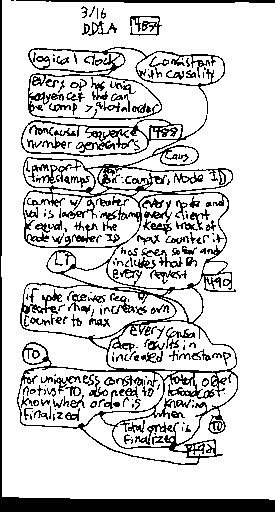 3/16
DDIA 487
logical clock
Consistent
with causality
every op has uniq
sequence# that can
be comp >, total order
noncausal sequence
number generators
488
Lamport
timestamps
(Counter, Node ID)
counter w/ greater
val is larger timestamp
if equal, then the
node w/ greater ID
every node and
every client
keeps track of
max counter it
has seen so far and
includes that on
every request
490
if node receives req w/
greater max, increases own
counter to max
every causal
dep. results in
increased timestamp
TO
for uniqueness constraint,
not just TO, also need to
know when order is
finalized
total order
broadcast
knowing
when
TO
total order is
finalized
492